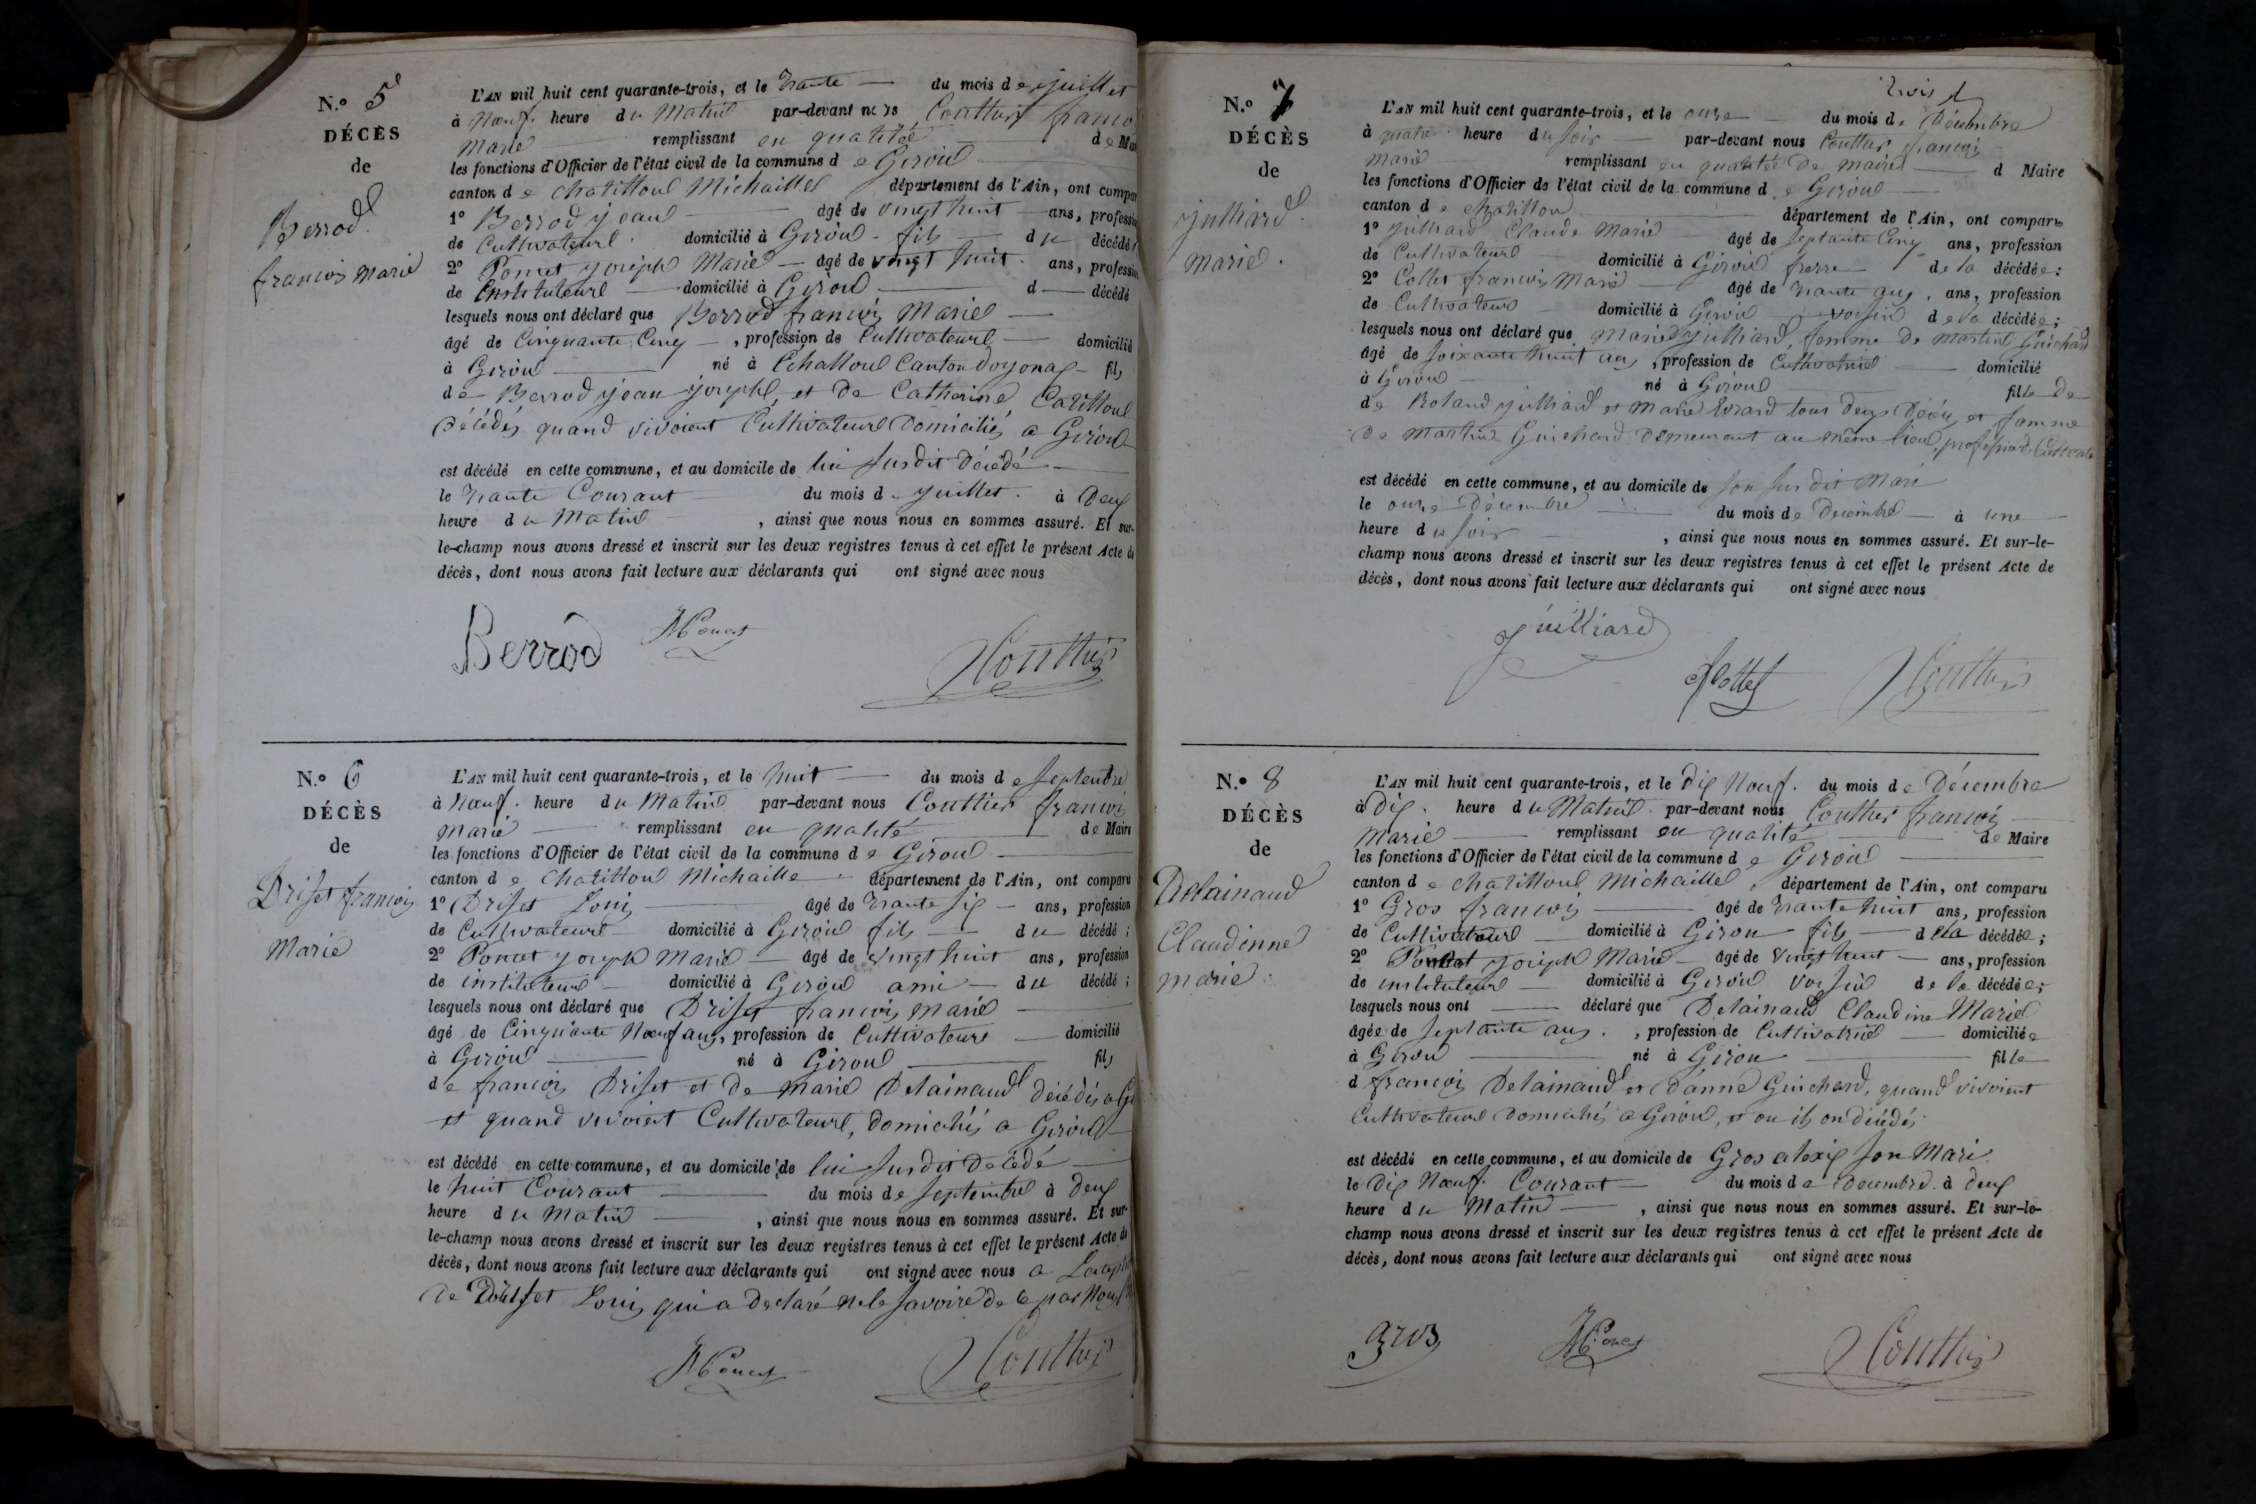 N.o 5
DÉCÈS
de
Berrod
francois marie
L'AN mil huit cent quarante-trois, et le trante du mois de juillet
à Nœuf heure du Matin par-devant nous Coutturier francois
Marie remplissant en qualitée de Mai
les fonctions d'Officier de l'état civil de la commune de Giron
canton de chatillon Michaille département de l'Ain, ont compar
1o Berrod jean âgé de vingt huit ans, profession
de Cultivateur domicilié à Giron fils du décédé
2o Poncet joseph Marie âgé de vingt huit ans, profession
de instituteur domicilié à Giron d décédé
lesquels nous ont déclaré que Berrod francois Marie
âgé de Cinquante Cinq, profession de Cultivateur domicilié
à Giron né à Echallon Canton doyonax fils
de Berrod jean joseph, et de Catherine Catillon
Décédés quand vivoient Cultivateur Domiciliés a Giron
est décédé en cette commune, et au domicile de lui susdit Décédé
le trante Courant du mois de juillet à Deux
heure du Matin, ainsi que nous nous en sommes assuré. Et sur-
le-champ nous avons dressé et inscrit sur les deux registres tenus à cet effet le présent Acte de
décès, dont nous avons fait lecture aux déclarants qui ont signé avec nous
Berrod Poncet
N.o 6
DÉCÈS
de
Driset francois
Marie
L'AN mil huit cent quarante-trois, et le huit du mois de septembre
à Nœuf heure du Matin par-devant nous francois
marie remplissant en qualité de Maire
les fonctions d'Officier de l'état civil de la commune de Giron
canton de chatillon Michaille département de l'Ain, ont comparu
1o Driset Louis âgé de trante six ans, profession
de Cultivateur domicilié à Giron fils du décédé ;
2o Poncet joseph Marie âgé de vingt huit ans, profession
de instituteur domicilié à Giron ami du décédé ;
lesquels nous ont déclaré que Driset francois marie
âgé de Cinquante Nœuf ans, profession de Cultivateur domicilié
à Giron né à Giron fils
de francois Driset et de marie Delainaud décédés a
et quand vivoient Cultivateur, Domiciliés a Giron
est décédé en cette commune, et au domicile de lui susdit Décédé
le huit Courant du mois de septembre à Deux
heure du Matin, ainsi que nous nous en sommes assuré. Et sur-
le-champ nous avons dressé et inscrit sur les deux registres tenus à cet effet le présent Acte de
décès, dont nous avons fait lecture aux déclarants qui ont signé avec nous a
de Driset Louis qui a Declaré ne le savoire de ce par Nous
Poncet
N.o 7
DÉCÈS
de
julliard
marie
L'AN mil huit cent quarante-trois, et le onze du mois de Décembre
à quatre heure du soir par-devant nous francois
marie remplissant en qualitée de maire d Maire
les fonctions d'Officier de l'état civil de la commune de Giron
canton de chatillon département de l'Ain, ont comparu
1o julliard Claude Marie âgé de septante Cinq ans, profession
de Cultivateur domicilié à Giron frerre de la décédée ;
2o Collet francois Marie âgé de trante ans, profession
de Cultivateur domicilié à Giron voisin de la décédée ;
lesquels nous ont déclaré que Marie julliard, femme de Martin Guichard
âgé de soixante huit ans, profession de Cultivatrice domicilié
à Giron né à Giron fille de
de Roland julliard et Marie Evrard tous deux Décédés, et famme
de Martin Guichard Demeurant au même lieu, profession de
est décédé en cette commune, et au domicile de son sus dit Mari
le onze Décembre du mois de Decembre à une
heure du soir, ainsi que nous nous en sommes assuré. Et sur-le-
champ nous avons dressé et inscrit sur les deux registres tenus à cet effet le présent Acte de
décès, dont nous avons fait lecture aux déclarants qui ont signé avec nous
juilliard
Collet
N.o 8
DÉCÈS
de
Delainaud
Claudinne
marie
L'AN mil huit cent quarante-trois, et le Dix Nœuf du mois de Décembre
à Dix heure du Matin par-devant nous francois
Marie remplissant en qualité de Maire
les fonctions d'Officier de l'état civil de la commune de Giron
canton de chatillon Michaille département de l'Ain, ont comparu
1o Gros francois âgé de trante huit ans, profession
de Cultivateur domicilié à Giron fils de la décédée ;
2o Poncet joseph Marie âgé de vingt huit ans, profession
de instituteur domicilié à Giron voisin de la décédée ;
lesquels nous ont déclaré que Delainaud Claudine Marie
âgée de septante ans, profession de Cultivatrice domiciliée
à Giron né à Giron fille
d francois Delainaud et D'anne Guichard, quand vivoient
Cultivateur Domiciliés a Giron, et ou ils on décédés
est décédé en cette commune, et au domicile de Gros alexis son Mari
le Dix Nœuf Courant du mois de Decembre à Deux
heure du Matin, ainsi que nous nous en sommes assuré. Et sur-le-
champ nous avons dressé et inscrit sur les deux registres tenus à cet effet le présent Acte de
décès, dont nous avons fait lecture aux déclarants qui ont signé avec nous
gros Poncet